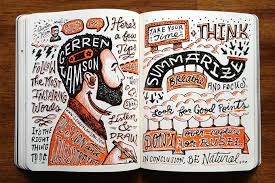 Here's
a few
Tips
GERREN
LAMSON
FOLLOW
THE MOST
INSPIRING
WORDS
IT'S THE
RIGHT
THING
TO DO.
Listen
& DRAW
TAKE YOUR
Time!
THINK
SUMMARIZE
Breathe
AND FOCUS
Look for Good Points
DON'T
over-render
OR RUSH
IN CONCLUSION, BE Natural...